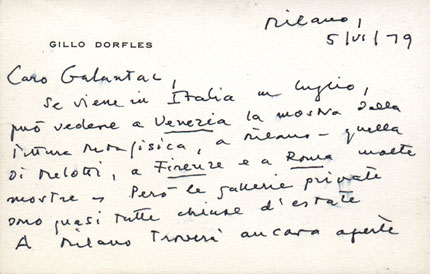 Milano,
5/VI/79
GILLO DORFLES
Caro Galantai,
Se viene in Italia in luglio,
può vedere a Venezia la mostra della
Pittura Metafisica, a Milano - quella
di Melotti, a Firenze e a Roma molte
mostre - Però le gallerie private
sono quasi tutte chiuse d'estate
A Milano troverà ancora aperte